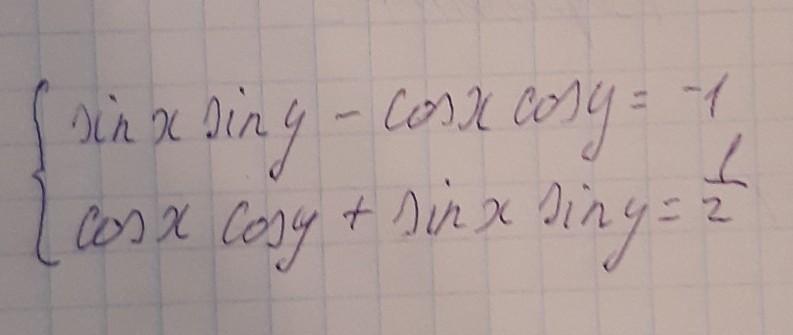 sin x sin y - cos x cos y = -1
cos x cos y + sin x sin y = 1/2